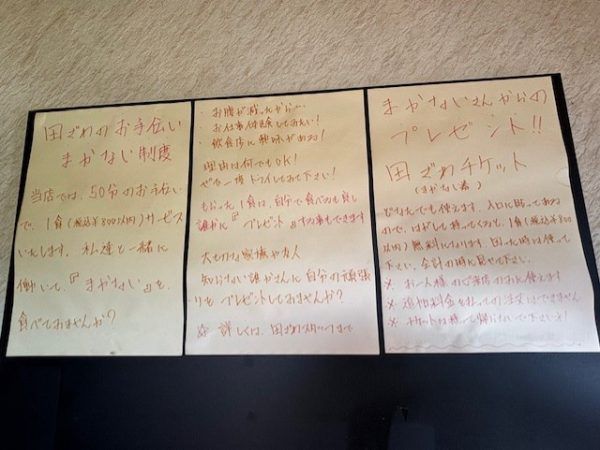 田ざわのお手伝い
まかない制度
当店では、50分のお手伝い
で、1食(税込¥800以内)サービス
いたします。私達と一緒に
働いて、『まかない』を、
食べてみませんか?
・お腹が減ったから…
・お仕事体験してみたい!
・飲食店に興味がある!
理由は何でもOK!
ぜひ一度トライしてみて下さい!
もらった1食は、自分で食べるも良し
誰かに『プレゼント』する事もできます
大切な家族や友人
知らない誰かさんに自分の頑張
りをプレゼントしてみませんか?
※詳しくは、田ざわスタッフまで
まかないさんからの
プレゼント!!
田ざわチケット
(まかない券)
どなたでも使えます。入口に貼ってあるの
で、はがして持ってくると、1食(税込¥800以
内)無料になります。困った時は使って
下さい。会計の時に見せて下さい。
※お一人様のご来店のみに使えます
※追加料金を払っての注文はできません
※チケットは持って帰らないで下さいネ!